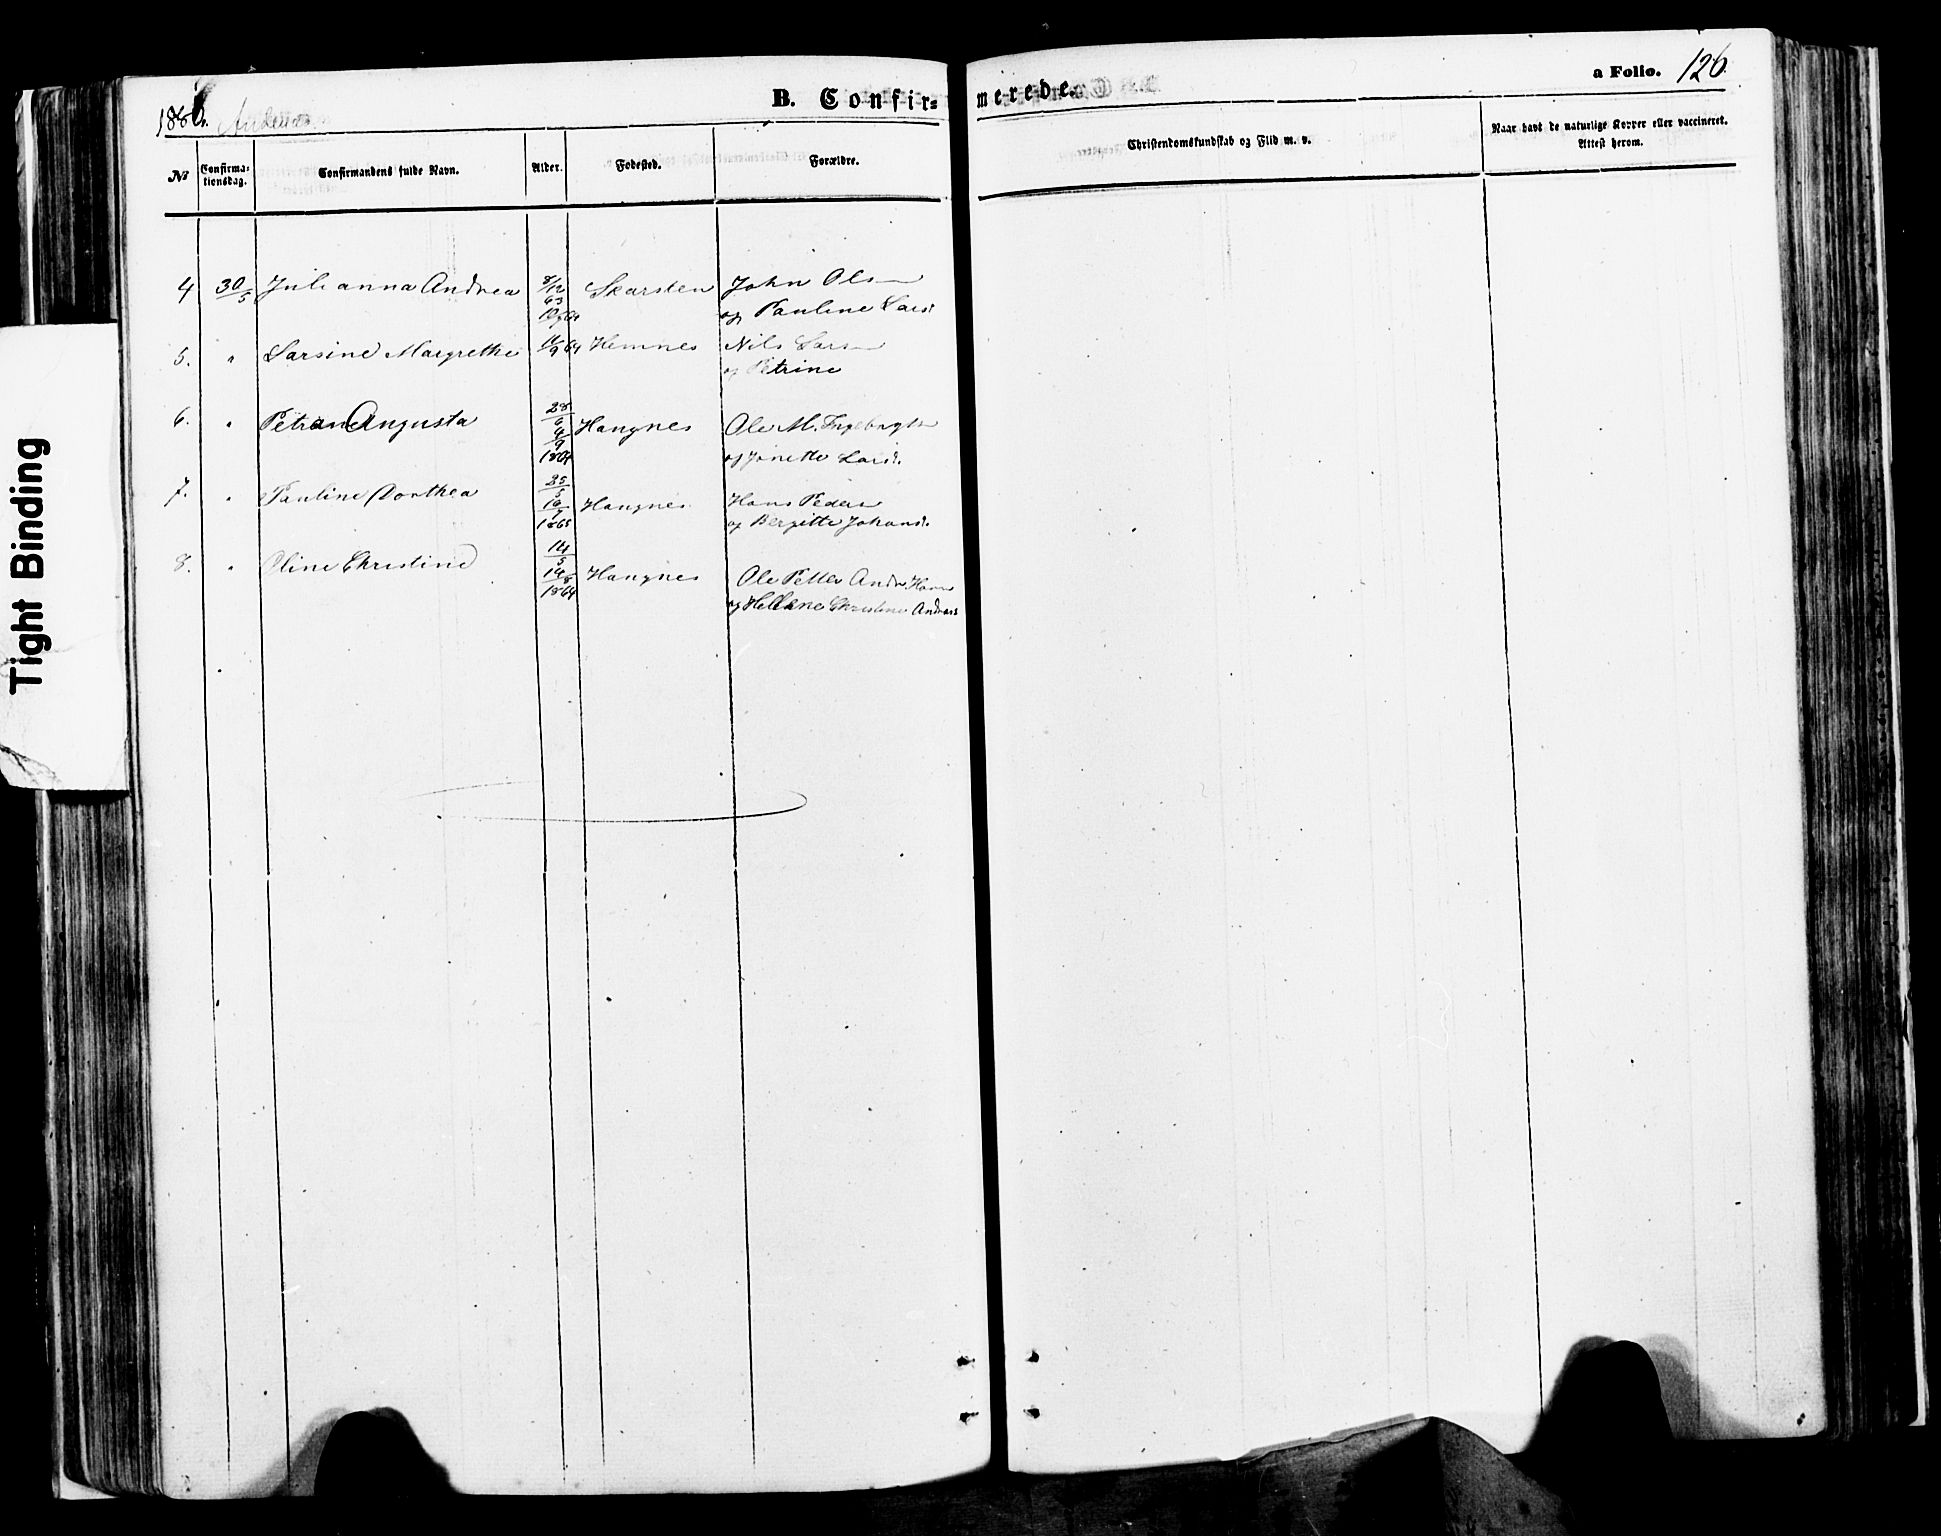 Tight Binding
1880.
B. Confir-
merede.
a Folio. 126
No
Confirma-
tionsdag.
Confirmandens fulde Navn.
Alder.
Fødested.
Forældre.
Christendomskundskab og Flid m. v.
Naar havt de naturlige Kopper eller vaccineret.
Attest herom.
4 30/5 Julianna Andrea 8/12 63 Skarsten John Olsen
og Pauline Larsd.
5. " Larsine Margrethe 64 Hemnes Nils Larsen
og Petrine
6. " Petrine Augusta 28/6 4/9 1864 Haugnes Ole M. Ingebrigts
og Janette Larsd.
7. " Pauline Dorthea 25/5 16/7 1865 Haugnes Hans Peders
og Bergitte Johansd.
8. " Oline Christine 14/5 1864 Haugnes Ole Petter Andr. Hans
og Hellene Christine Andreasd